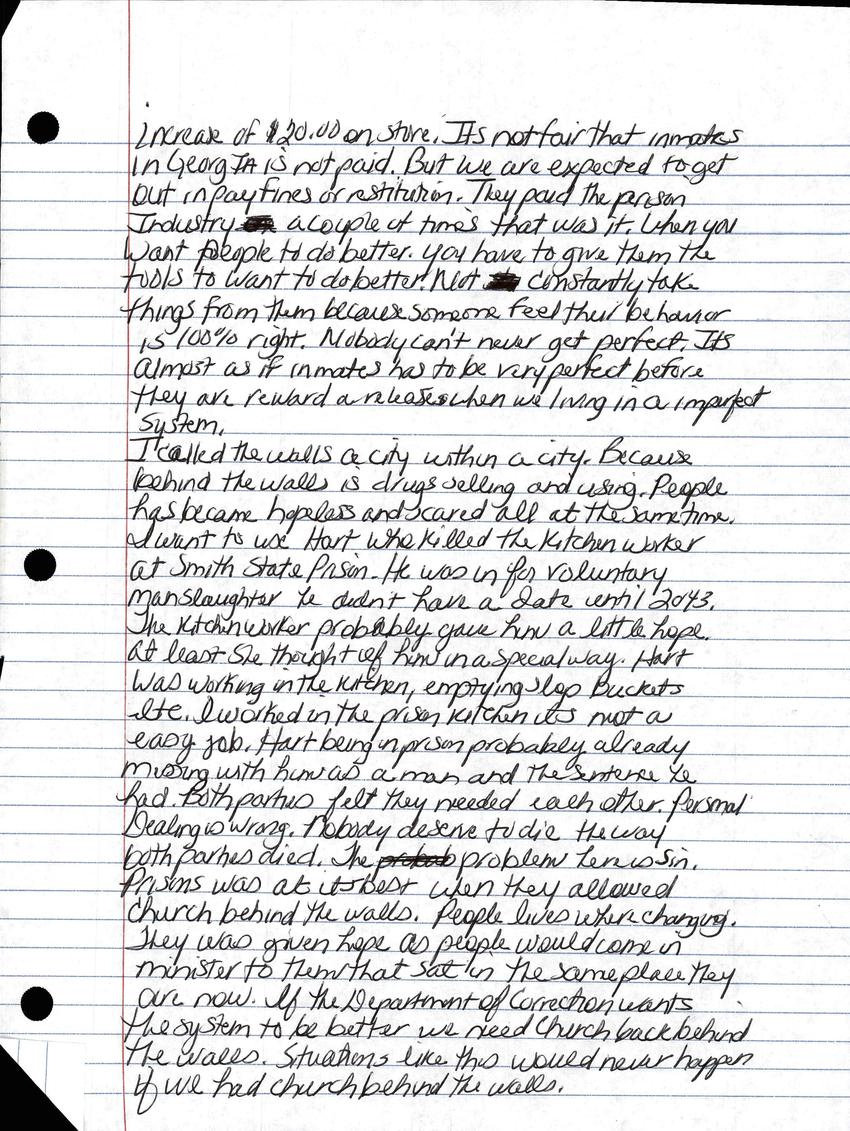 Increase of $20.00 on store. Its not fair that inmates
in GeorgIA is not paid. But we are expected to get
out in pay fines or restitution. They paid the prison
Industry a couple of times that was it. When you
want people to do better. You have to give them the
tools to want to do better. Not constantly take
things from them because someone feel their behavior
is 100% right. Nobody can't never get perfect. Its
almost as if inmates has to be very perfect before
they are reward a release when we living in a imperfect
System.
I called the walls a city within a city. Because
behind the walls is drugs selling and using. People
has became hopeless and scared all at the same time.
I want to use Hart who killed the kitchen worker
at Smith State Prison. He was in for voluntary
manslaughter he didn't have a date until 2043.
The kitchen worker probably gave him a little hope.
at least she thought of him in a special way. Hart
was working in the kitchen, emptying slop buckets
etc. I worked in the prison kitchen its not a
easy job. Hart being in prison probably already
missing with him as a man and the sentence he
had. Both parties felt they needed each other. Personal
Dealing is wrong. Nobody deserve to die the way
both parties died. The problem here is sin.
Prisons was at its best when they allowed
church behind the walls. People lives where changing.
They was given hope as people would come in
minister to them that sat in the same place they
are now. If the Department of Correction wants
the system to be better we need church back behind
the walls. Situations like this would never happen
if we had church behind the walls.